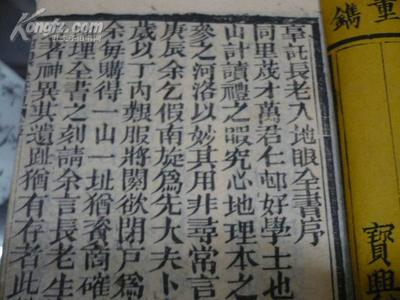 重
鐫
寶興
辜託長老入地眼全書序
同里茂才萬君仁邨好學士也
山計讀禮之暇究心地理本之
參之河洛以妙其用非尋常言
庚辰余乞假南旋為先大夫卜
歲以丁內艱服將闋欲閉戶為
余每購得一山一址猶商確
理全書之刻請余言長老生
者神異其遺趾猶有存者此
Kongfz.com